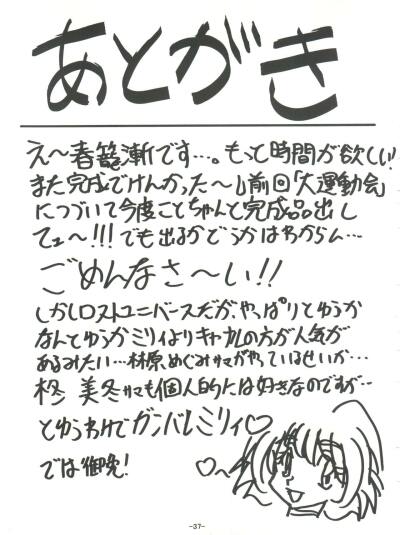 あとがき
え〜春籠漸です…。もっと時間が欲しい!
また完成でけんかった〜!前回「大運動会」
につづいて今度こそちゃんと完成品出し
てェ〜!!!でも出るかどうかはわからん…
ごめんなさ〜い!!
しかしロストユニバースだが、やっぱりとゆうか
なんとゆうかミリィよりキャナルの方が人気が
あるみたい…林原めぐみサマがやっているせいか…
柊 美冬サマも個人的には好きなのですが…
とゆうわけでガンバレミリィ♡
では御免!
-37-